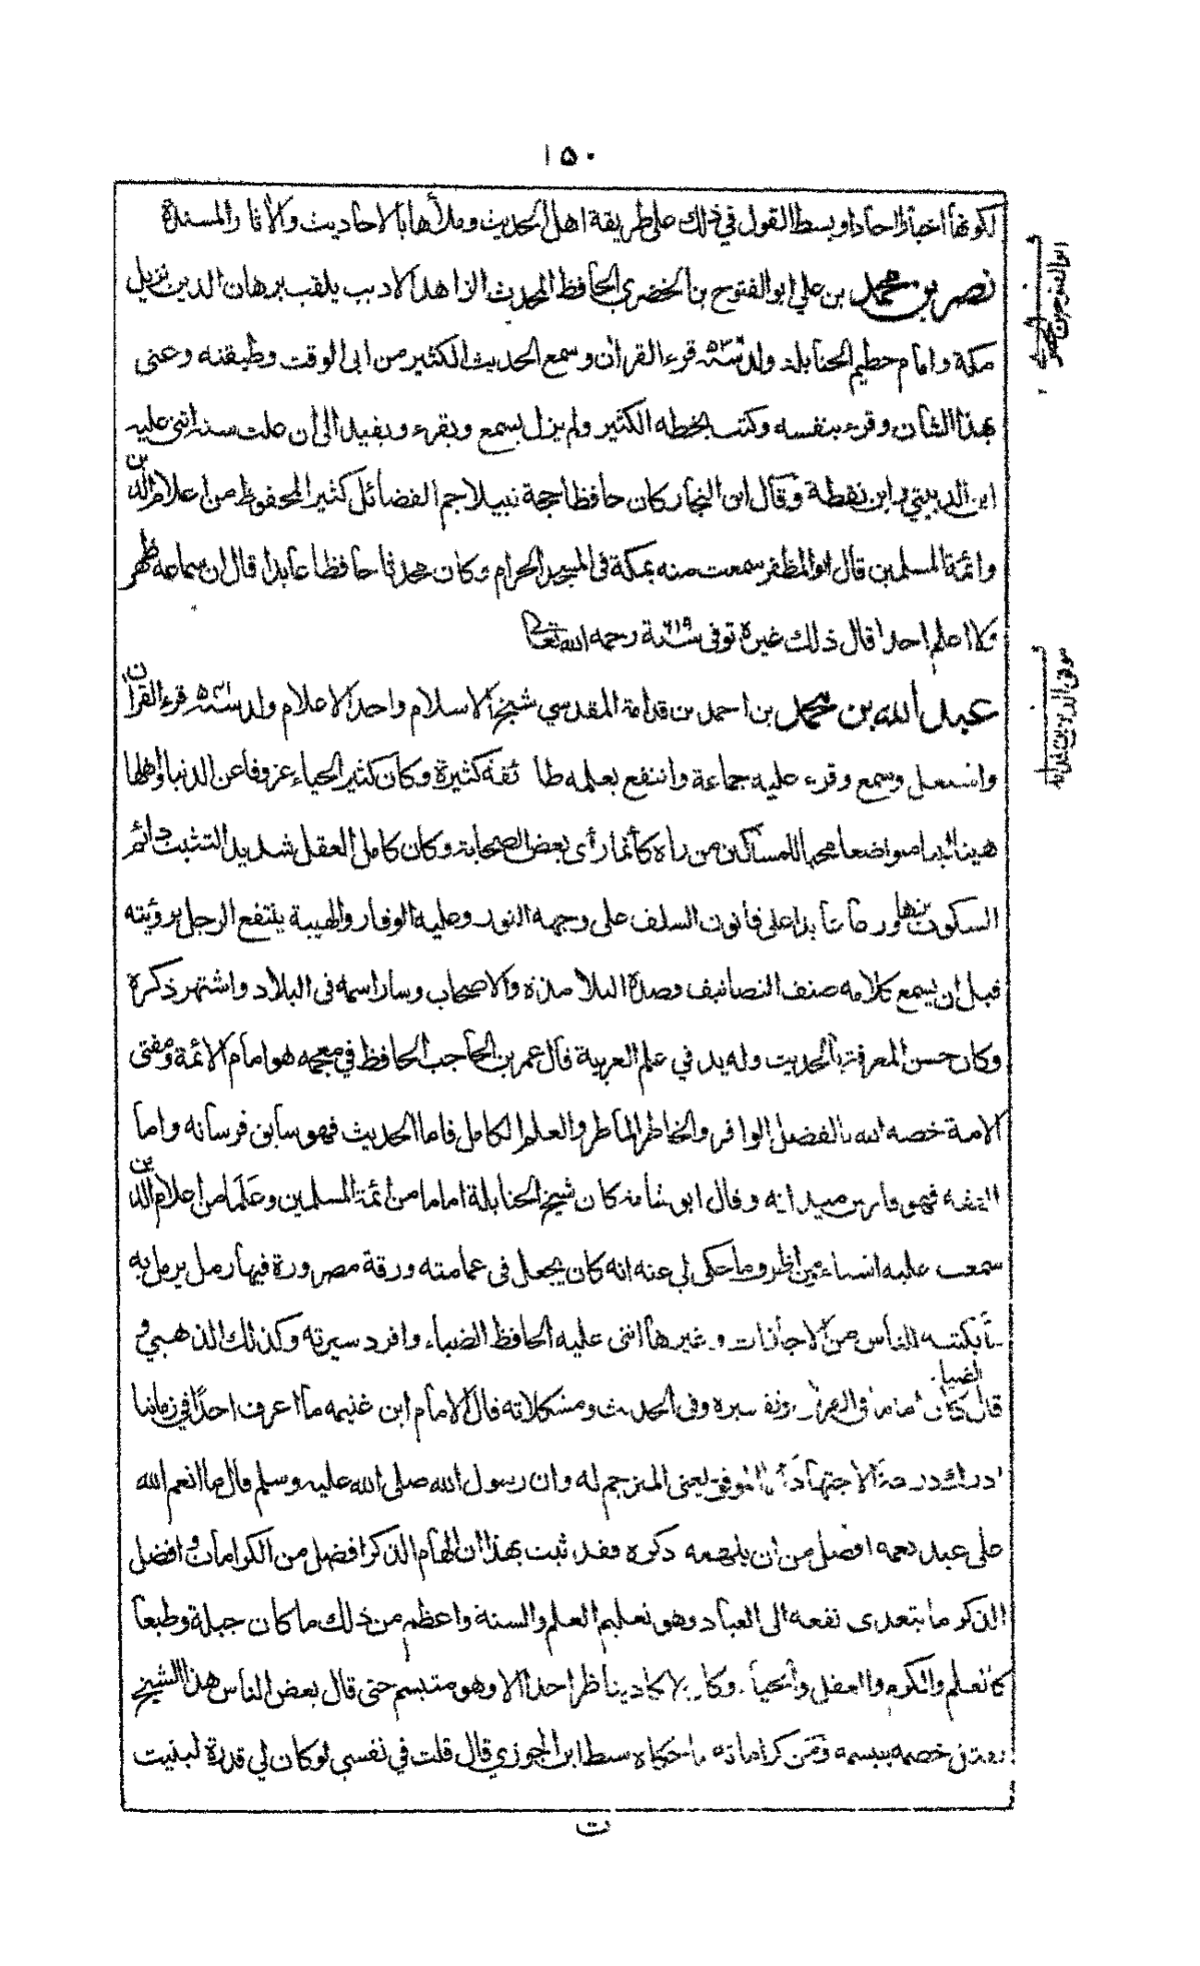 ١٥٠
لكونها اخبارا احادا وبسط القول في ذلك على طريقة اهل الحديث وملأها بالاحاديث والآثار المسندة
نصر بن محمد بن علي ابو الفتوح بن الحضري الحافظ المحدث الزاهد الاديب يلقب برهان الدين نزيل
مكة وامام حطيم الحنابلة ولد سنة قرء القران وسمع الحديث الكثير من ابى الوقت وطبقته وعنى
بهذا الشان وقرء بنفسه وكتب بخطه الكثير ولم يزل يسمع ويقرء ويفيد الى ان علت سنه اثنى عليه
ابن الدبيثي وابن نقطة وقال ابن النجار كان حافظا حجة نبيلا جم الفضائل كثير المحفوظ من اعلام الدين
وائمة المسلمين قال ابو المظفر سمعت منه بمكة في المسجد الحرام وكان محدثا حافظا عابدا قال ان سماعه ظهر
كلا اعلم احدا قال ذلك غيره توفى سنة ٦١٩ رحمه الله تعالى
عبد الله بن محمد بن احمد بن قدامة المقدسي شيخ الاسلام واحد الاعلام ولد سنة ٥٤١ قرء القران
واشتغل وسمع وقرء عليه جماعة وانتفع بعلمه طائفة كثيرة وكان كثير الحياء عزوفا عن الدنيا واهلها
هينا لينا متواضعا محبا للمساكين من راه كأنما رأى بعض الصحابة وكان كامل العقل شديد التثبت دائم
السكوت نزها ورعا عابدا على قانون السلف على وجهه النور وعليه الوقار والهيبة ينتفع الرجل برؤيته
قبل ان يسمع كلامه صنف التصانيف وصدة التلامذة والاصحاب وسار اسمه فى البلاد واشتهر ذكره
وكان حسن المعرفة بالحديث وله يد في علم العربية قال عمر بن الحاجب الحافظ في معجمه هو امام الائمة ومفتى
الامة خصه الله بالفضل الوافر والخاطر الماطر والعلم الكامل فاما الحديث فهو سابق فرسانه واما
الفقه فهو فارس ميدانه وقال ابو شامة كان شيخ الحنابلة اماما من ائمة المسلمين وعلما من اعلام الدين
سمعت عليه اشياء من اظرف ما حكى لي عنه انه كان يجعل فى عمامته ورقة مصرورة فيها رمل يرمل به
ما يكتبه للناس من الاجازات وغيرها اثنى عليه الحافظ الضياء وافرد سيرته وكذلك الذهبي و
قال الضياء كان اماما فى القران وتفسيره وفى الحديث ومشكلاته قال الامام ابن غنيمه ما اعرف احدا في زماننا
ادرك درجة الاجتهاد الا الموفق يعنى المترجم له وان رسول الله صلى الله عليه وسلم قال ما انعم الله
على عبد نعمه افضل من ان يلهمه ذكره فقد ثبت بهذا ان الهام الذكر افضل من الكرامات وافضل
الذكر ما يتعدى نفعه الى العباد وهو تعليم العلم والسنة واعظم من ذلك ما كان جبلة وطبعا
كالعلم والكرم والعقل والحياء وكان لا يكاد يناظر احدا الا وهو متبسم حتى قال بعض الناس هذا الشيخ
يقتل خصمه بتبسمه ومن كراماته ما حكاه سبط ابن الجوزي قال قلت في نفسي لو كان لي قدرة لبنيت
ت
ابو الفتوح بن الحضري
موفق الدين بن قدامة